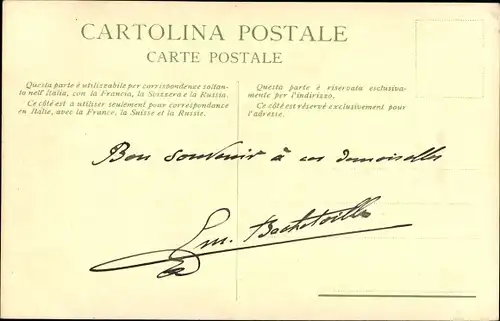 CARTOLINA POSTALE
CARTE POSTALE
Questa parte è utilizzabile per corrispondenze soltan-
to nell'Italia, con la Francia, la Svizzera e la Russia.
Ce côté est à utiliser seulement pour correspondance
en Italie, avec la France, la Suisse et la Russie.
Questa parte è riservata esclusiva-
mente per l'indirizzo.
Ce côté est réservé exclusivement pour
l'adresse.
Bon souvenir à ces demoiselles
Em.